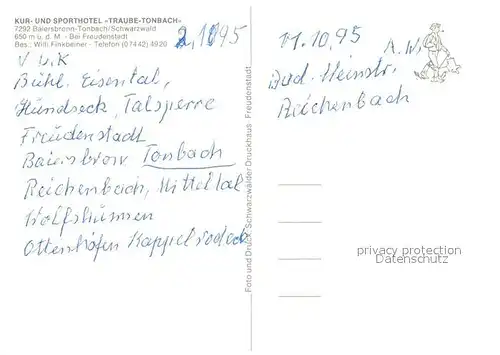 KUR- UND SPORTHOTEL »TRAUBE-TONBACH«
7292 Baiersbronn-Tonbach/Schwarzwald
650 m ü. d. M · Bei Freudenstadt
Bes.: Willi Finkbeiner · Telefon (07442) 4920
2,10 95
V d K
Bühl. Eisental,
Hundseck, Talsperre
Freudenstadt
Baiersbron Tonbach
Reichenbach, Mitteltal
Ottenhöfen Kappelrodeck
Foto und Druck: Schwarzwälder Druckhaus Freudenstadt
11.10.95
A.W.
Reichenbach
privacy protection
Datenschutz